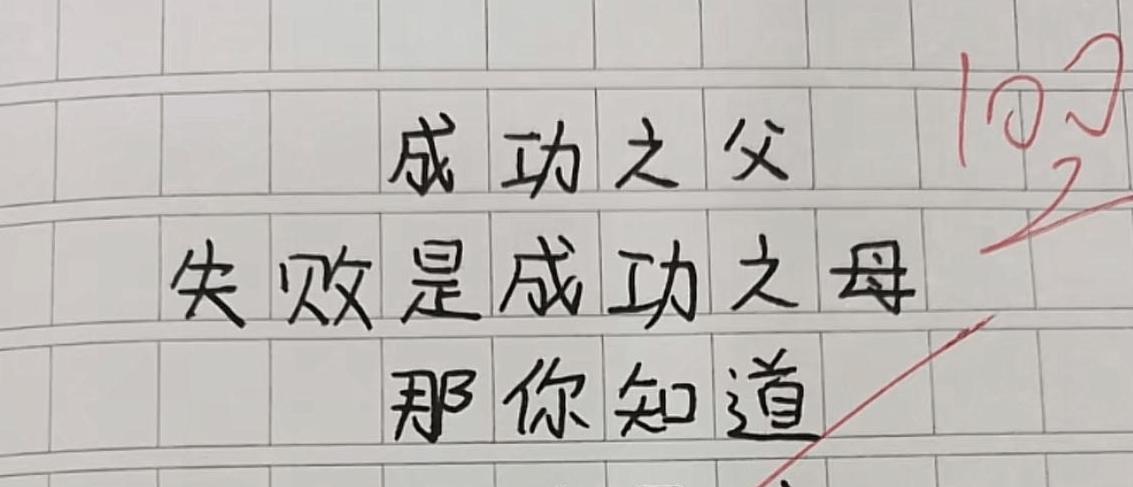 成功之父
失败是成功之母
那你知道